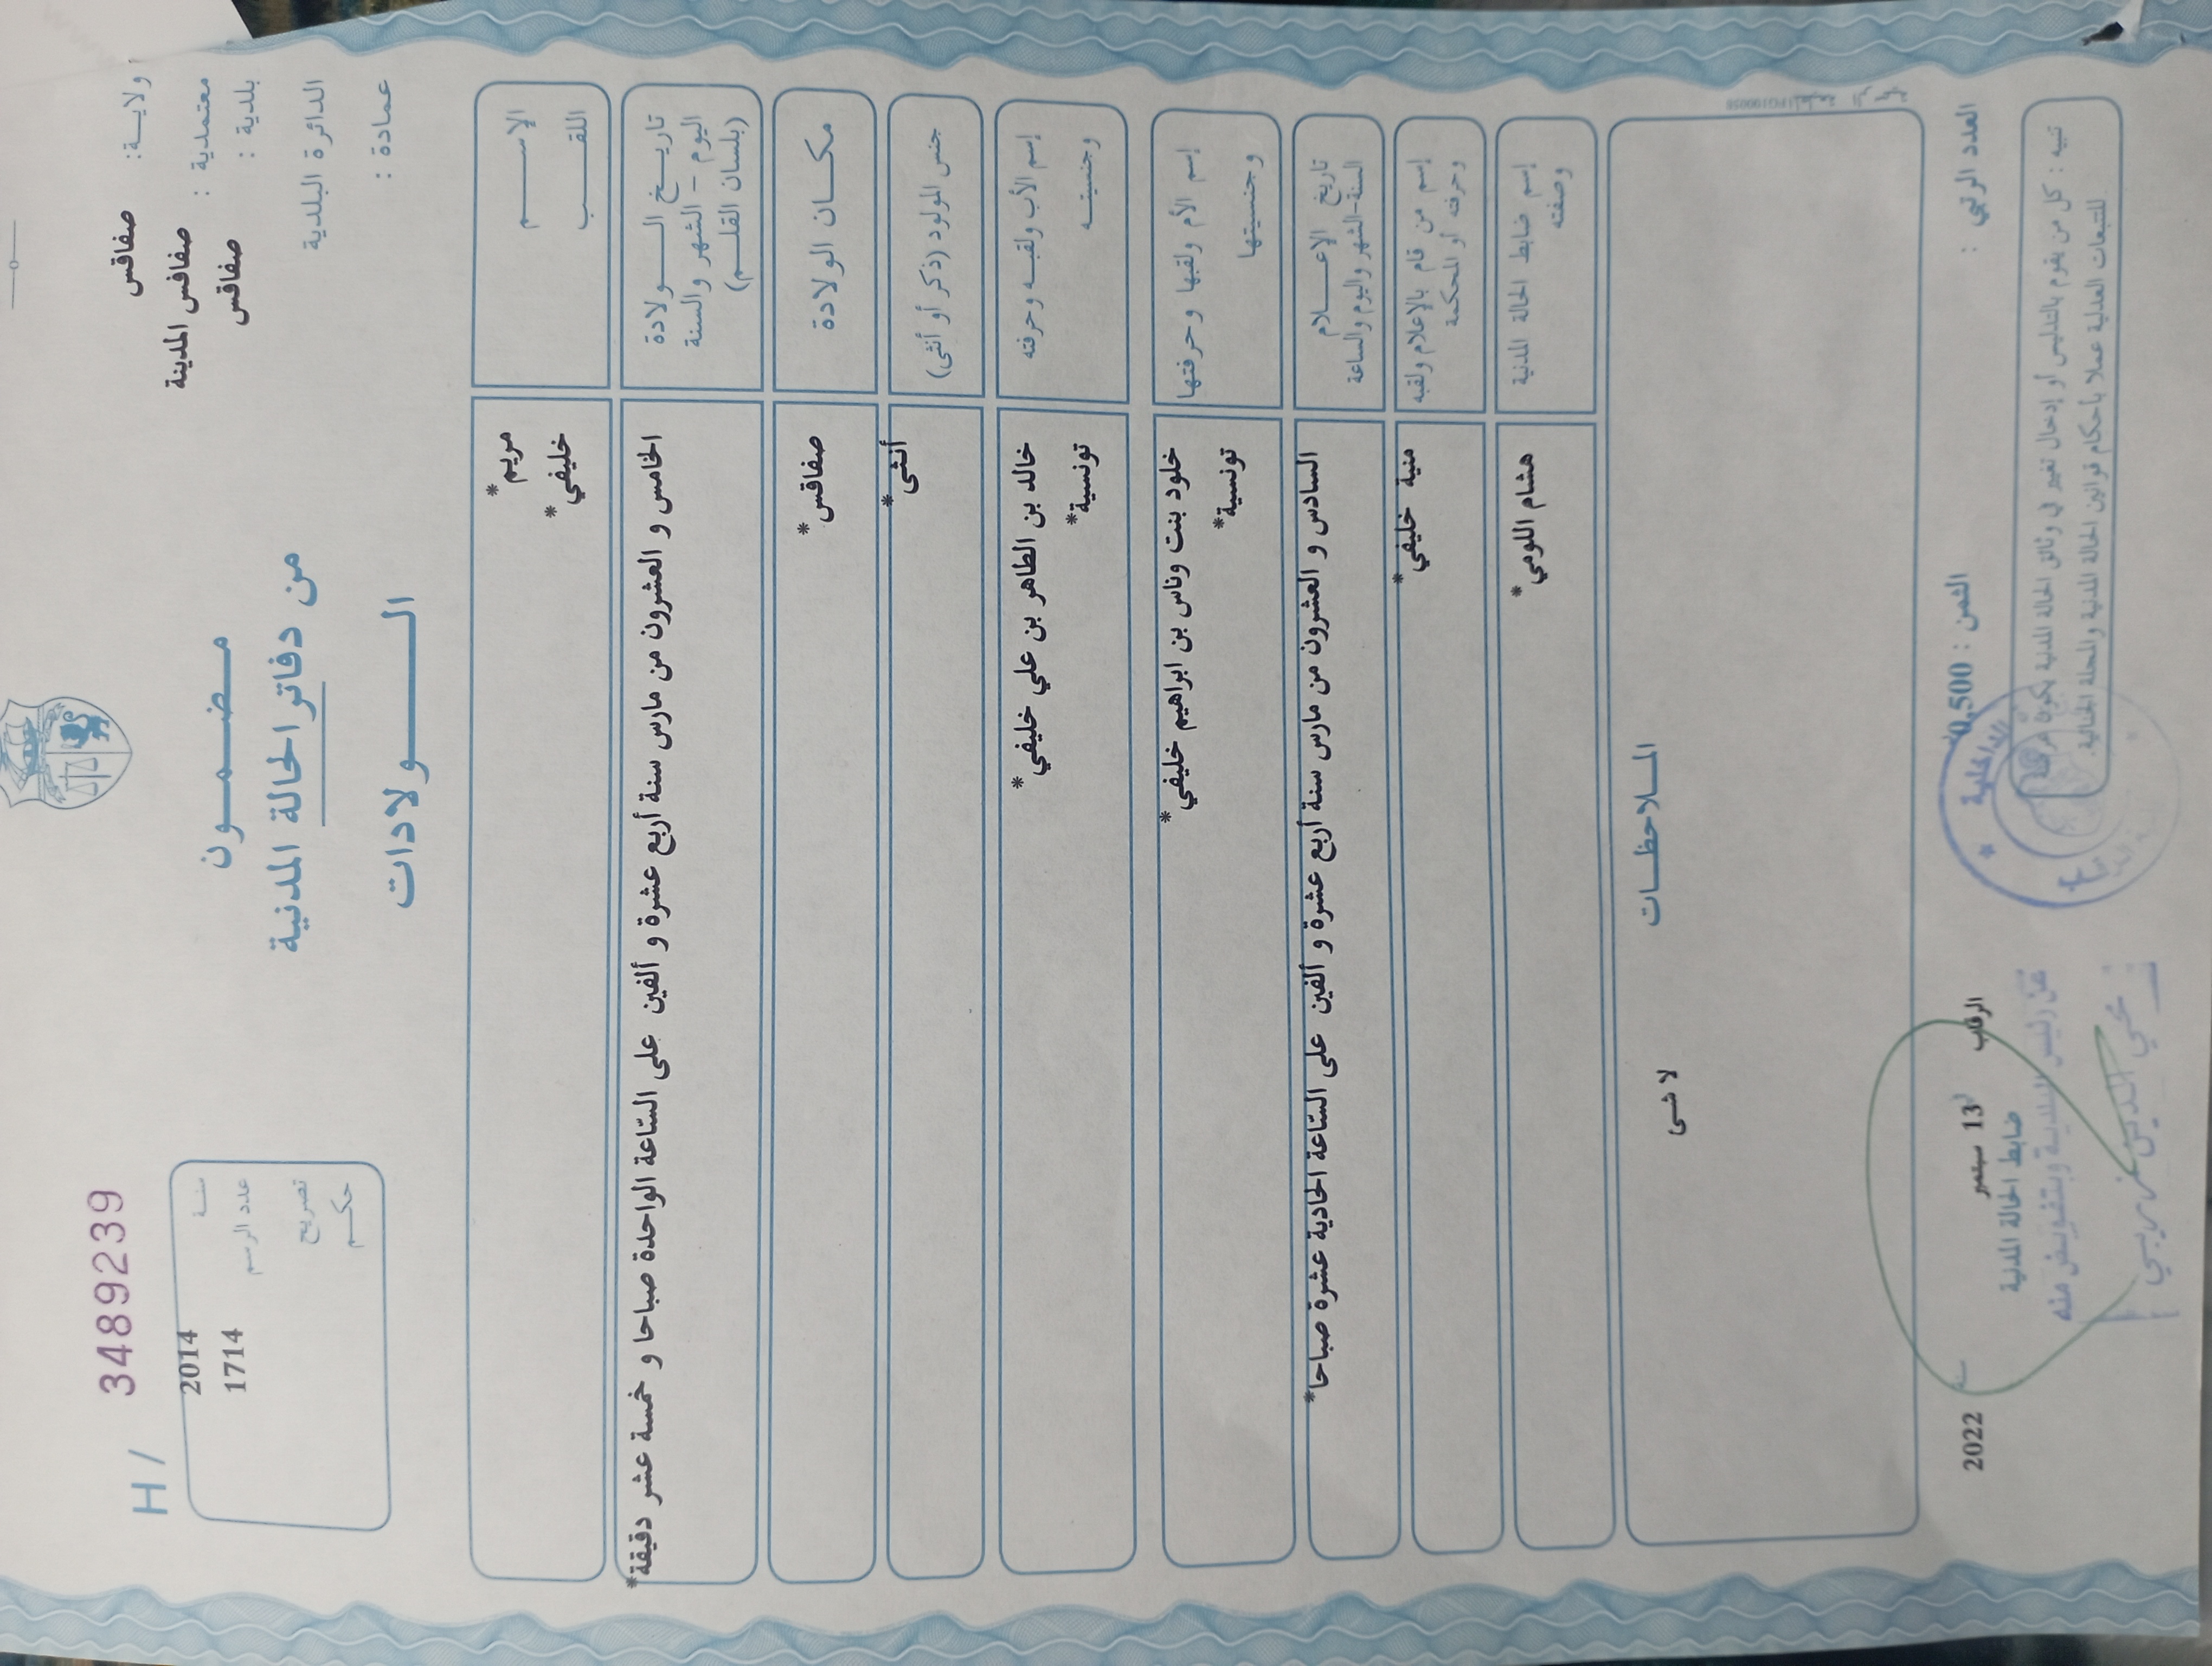 ولايـــة: صفاقس
معتمدية : صفاقس المدينة
بلدية : صفاقس
الدائرة البلدية
عمادة :
مـــضـــمـــون
من دفاتر الحالة المدنية
الـــــولادات
H / 3489239
سنـــة 2014
عدد الرسم 1714
تصريح
حكـــم
الإســـــم مريم*
اللقـــــب خليفي*
تاريـــخ الـــولادة
اليوم - الشهر والسنة
(بلسان القلـــم)
الخامس و العشرون من مارس سنة أربع عشرة و ألفين على السّاعة الواحدة صباحا و خمسة عشر دقيقة*
مكـــان الولادة صفاقس*
جنس المولود (ذكر أو أنثى) أنثى*
إسم الأب ولقبـــه وحرفته خالد بن الطاهر بن علي خليفي*
وجنسيتـــه تونسية*
إسم الأم ولقبها وحرفتها خلود بنت وناس بن ابراهيم خليفي*
وجنسيتها تونسية*
تاريخ الإعـــلام
السنة-الشهر واليوم والساعة
السادس و العشرون من مارس سنة أربع عشرة و ألفين على السّاعة الحادية عشرة صباحا*
إسم من قام بالإعلام ولقبه
وحرفته أو المحكمة
منية خليفي*
إسم ضابط الحالة المدنية
وصفته
هشام اللومي*
المـــلاحظـــات
لا شى
العدد الرتبي :
الثمن : 0,500
الرقاب في 13 سبتمبر سنة 2022
ضابط الحالة المدنية
عن رئيس البلدية وبتفويض منه
محي الدين
تنبيه : كل من يقوم بالتدليس أو إدخال تغيير في وثائق الحالة المدنية يكون عرضة
للتتبعات العدلية عملا بأحكام قوانين الحالة المدنية والمجلة الجنائية.
الداخلية